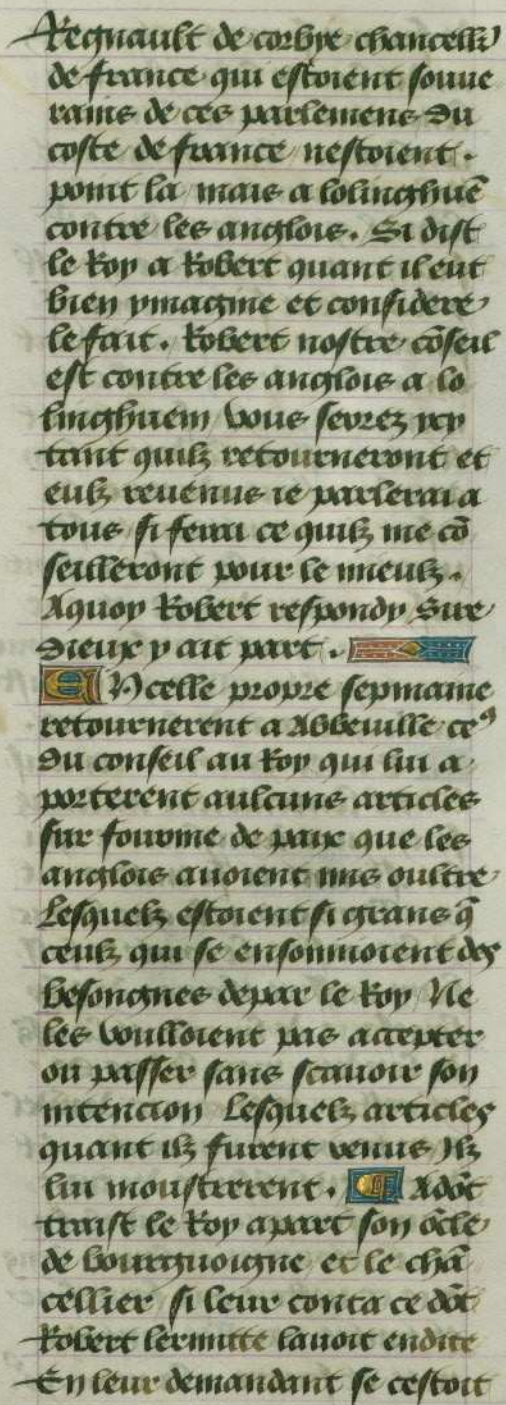 Regnault de corbye chancell᷑
de france qui estoient souue
rains de ces parlemens du
coste de france nestoient .
point la mais a lolinghuẽ
contre les anglois . Si dist
le Roy a Robert quant il eut
bien ymagine et considere
le fait . Robert nostre cõseil
est contre les anglois a lo
linghuem vous serez ycy
tant quilz retourneront et
eulz reuenus ie parlerai a
tous si ferai ce quilz me cõ
seilleront pour le mieulz .
A quoy Robert respondy Sire
dieux y ait part .
EN celle propre sepmaine
retournerent a Abbeuille ceꝰ
du conseil au Roy qui lui a
porterent aulcuns articles
sur fourme de paix que les
anglois auoient mis oultre
Lesquelz estoient si grans q̃
ceulz qui se ensonnioient des
besongnes depar le Roy Ne
les voulloient pas accepter
ou passer sans scauoir son
intencion Lesquelz articles
quant ilz furent venus Ilz
lui moustrerent . ¶ Adõt
traist le Roy apart son õcle
de bourguoigne et le chã
cellier si leur conta ce dõt
Robert lermitte lauoit endite
En leur demandant se cestoit